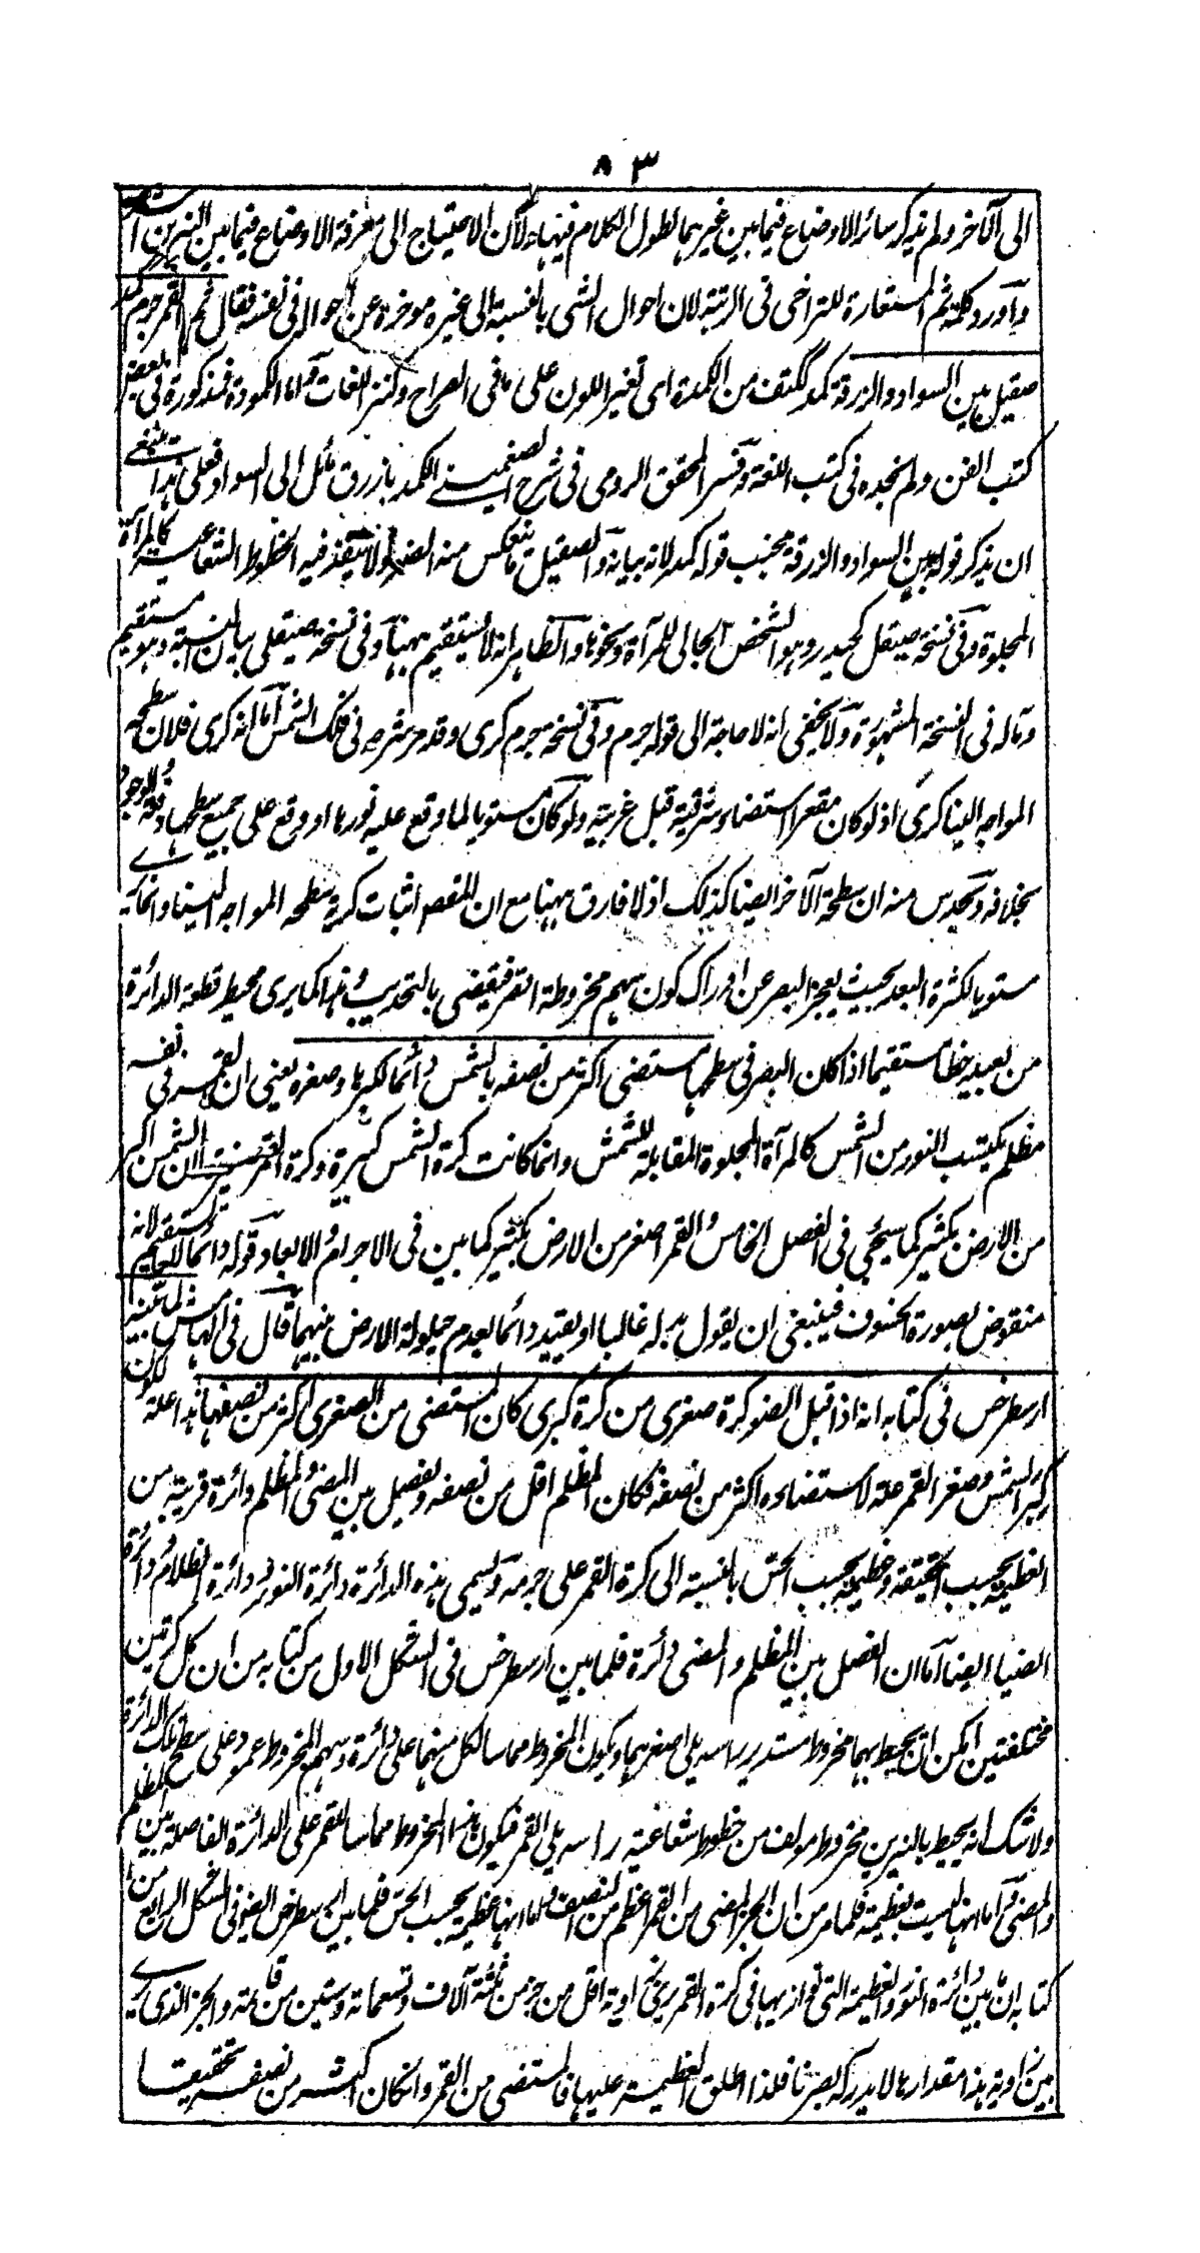 ٨٣
الى الآخر ولم يذكر سائر الاوضاع فيما بين غيرهما لطول الكلام فيها ولأن الاحتياج الى معرفة الاوضاع فيما بين النيرين
وآورد كلمة ثم المستعارة للتراخى فى الرتبة لان احوال الشى بالنسبة الى غيره موخرة عن احواله فى نفسه فقال ثم القمر جرم كمد
صقيل بين السواد والزرقة كمد ككتف من الكمدة اى تغير اللون على ما فى الصراح وكنز اللغات وآما الكمودة فمذكورة فى بعض
كتب الفن ولم نجده فى كتب اللغة وفسر المحقق الرومى فى شرح الجغمينى الكمد بازرق مائل الى السواد فعلى هذا ينبغى
ان يذكر قوله بين السواد والزرقة بجنب قوله كمد لانه بيانه والصقيل ما ينعكس منه الضوء ولا ينفذ فيه الخطوط الشعاعية كالمرآة
المجلوة وفى نسخة صيقل كحيدر وهو الشخص الجالى للمرآة ونحوها والظاهر انه لا يستقيم ههنا وفى نسخة صيقلى بيا النسبة وهو مستقيم
وماله فى النسخة المشهورة ولا يخفى انه لا حاجة الى قوله جرم وفى نسخة جرم كرى وقد مر شرحه فى فلك الشمس اما انه كرى فلان سطحه
المواجه الينا كرى اذ لو كان مقعرا استضاء شرقيته قبل غربيته ولو كان مستويا لما وقع عليه نورها او وقع على جميع سطحها دفعة والوجود
بخلافه ويحدس منه ان سطحه الآخر ايضا كذلك اذ لا فارق ههنا مع ان المقصود اثبات كرية سطحه المواجه الينا وانما يرى
مستويا لكثرة البعد بحيث يعجز البصر عن ادراك كون سهم مخروطة اقصر فيقضى بالتحديب وهذا كما يرى محيط قطعة الدائرة
من بعيد خطا مستقيما اذا كان البصر فى سطحها مستضى اكثر من نصفه بالشمس دائما لكبرها وصغره يعنى ان القمر فى نفسه
مظلم يكتسب النور من الشمس كالمرآة المجلوة المقابلة للشمس وانما كانت كرة الشمس كبيرة وكرة القمر صغيرة لان الشمس اكبر
من الارض بكثير كما سيجئ فى الفصل الخامس والقمر اصغر من الارض بكثير كما بين فى الاجرام والابعاد وقوله دائما لا يستقيم لانه
منقوض بصورة الخسوف فينبغى ان يقول بدله غالبا او يقيد دائما بعدم حيلولة الارض بينهما قال فى الهامش لما تبين
ارسطرخس فى كتابه انه اذا قبل الضوء كرة صغرى من كرة كبرى كان المستضى من الصغرى اكثر من نصفها هذا علة لكون
كبر الشمس وصغر القمر علة لاستضاءه اكثر من نصفه فكان المظلم اقل من نصفه ويفصل بين المضى والمظلم دائرة قريبة من
العظيمة بحسب الحقيقة وعظيمة بحسب الحس بالنسبة الى كرة القمر على جرمه وتسمى هذه الدائرة دائرة النور ودائرة الظلام ودائرة
الضياء ايضا آما ان الفصل بين المظلم والمضى دائرة فلما بين ارسطرخس فى الشكل الاول من كتابه من ان كل كرتين
مختلفتين امكن ان يحيط بهما مخروط مستدير راسه يلى اصغرهما ويكون المخروط مماسا لكل منهما على دائرة وسهم المخروط عمود على سطح تلك الدائرة
ولا شك انه يحيط بالنيرين مخروط مولف من خطوط شعاعية راسه يلى القمر فيكون هذا المخروط مماسا للقمر على الدائرة الفاصلة بين المظلم
والمضى وآما انها ليست بعظيمة فلما مر من ان الجزء المضى من القمر اعظم من النصف واما انها عظيمة بحسب الحس فلما بين ارسطرخس ايضا فى الشكل الرابع من
كتابه ان بين دائرة النور والعظيمة التى توازيها فى كرة القمر يرى زاوية اقل من جزء من ثلثة آلاف وتسعمائة وستين من قائمة والجزء الذى يرى
من زاوية هذا مقدارها لا يدركه بصرنا فلذا اطلق العظيمة عليها فالمستضى من القمر وانكان اكثر من نصفه تحقيقا